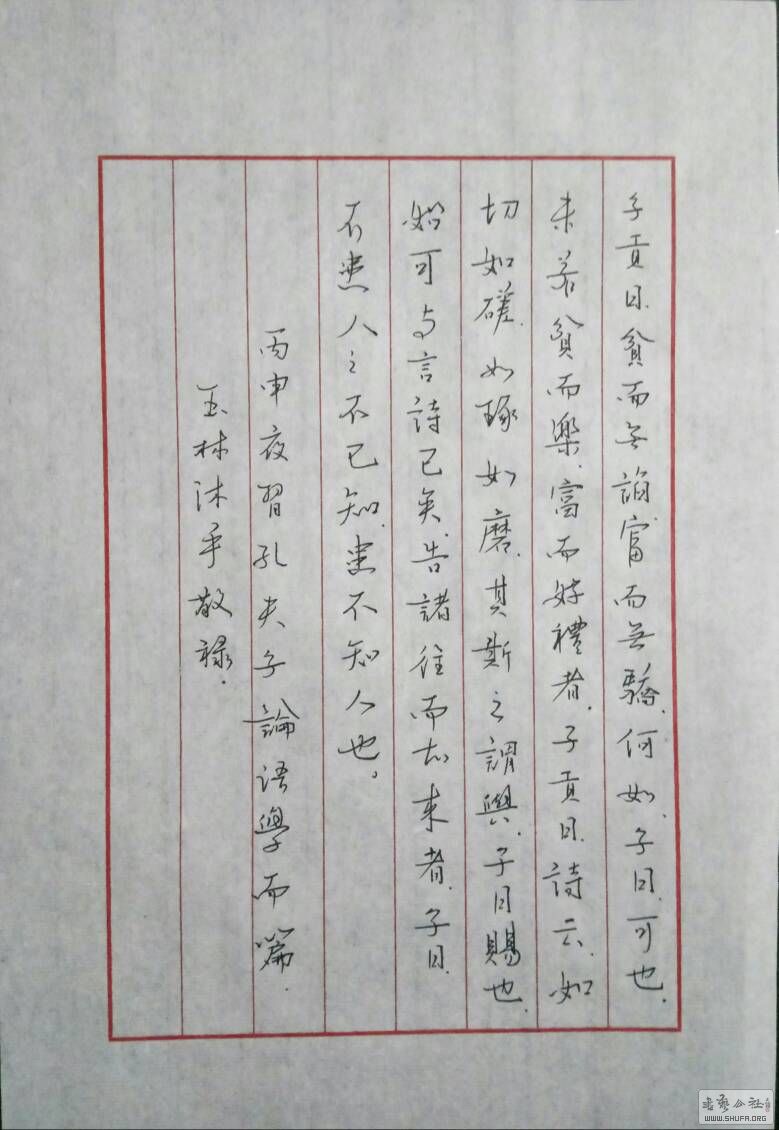 子貢曰.貧而无諂.富而无驕.何如.子曰.可也.
未若貧而樂.富而好禮者.子貢曰.詩云.如
切如磋.如琢如磨.其斯之謂與.子曰賜也.
始可与言詩已矣.告諸往而知来者.子曰.
不患人之不己知.患不知人也。
丙申夜習孔夫子論语學而篇.
玉林沐手敬禄.
书艺公社
WWW.SHUFA.ORG